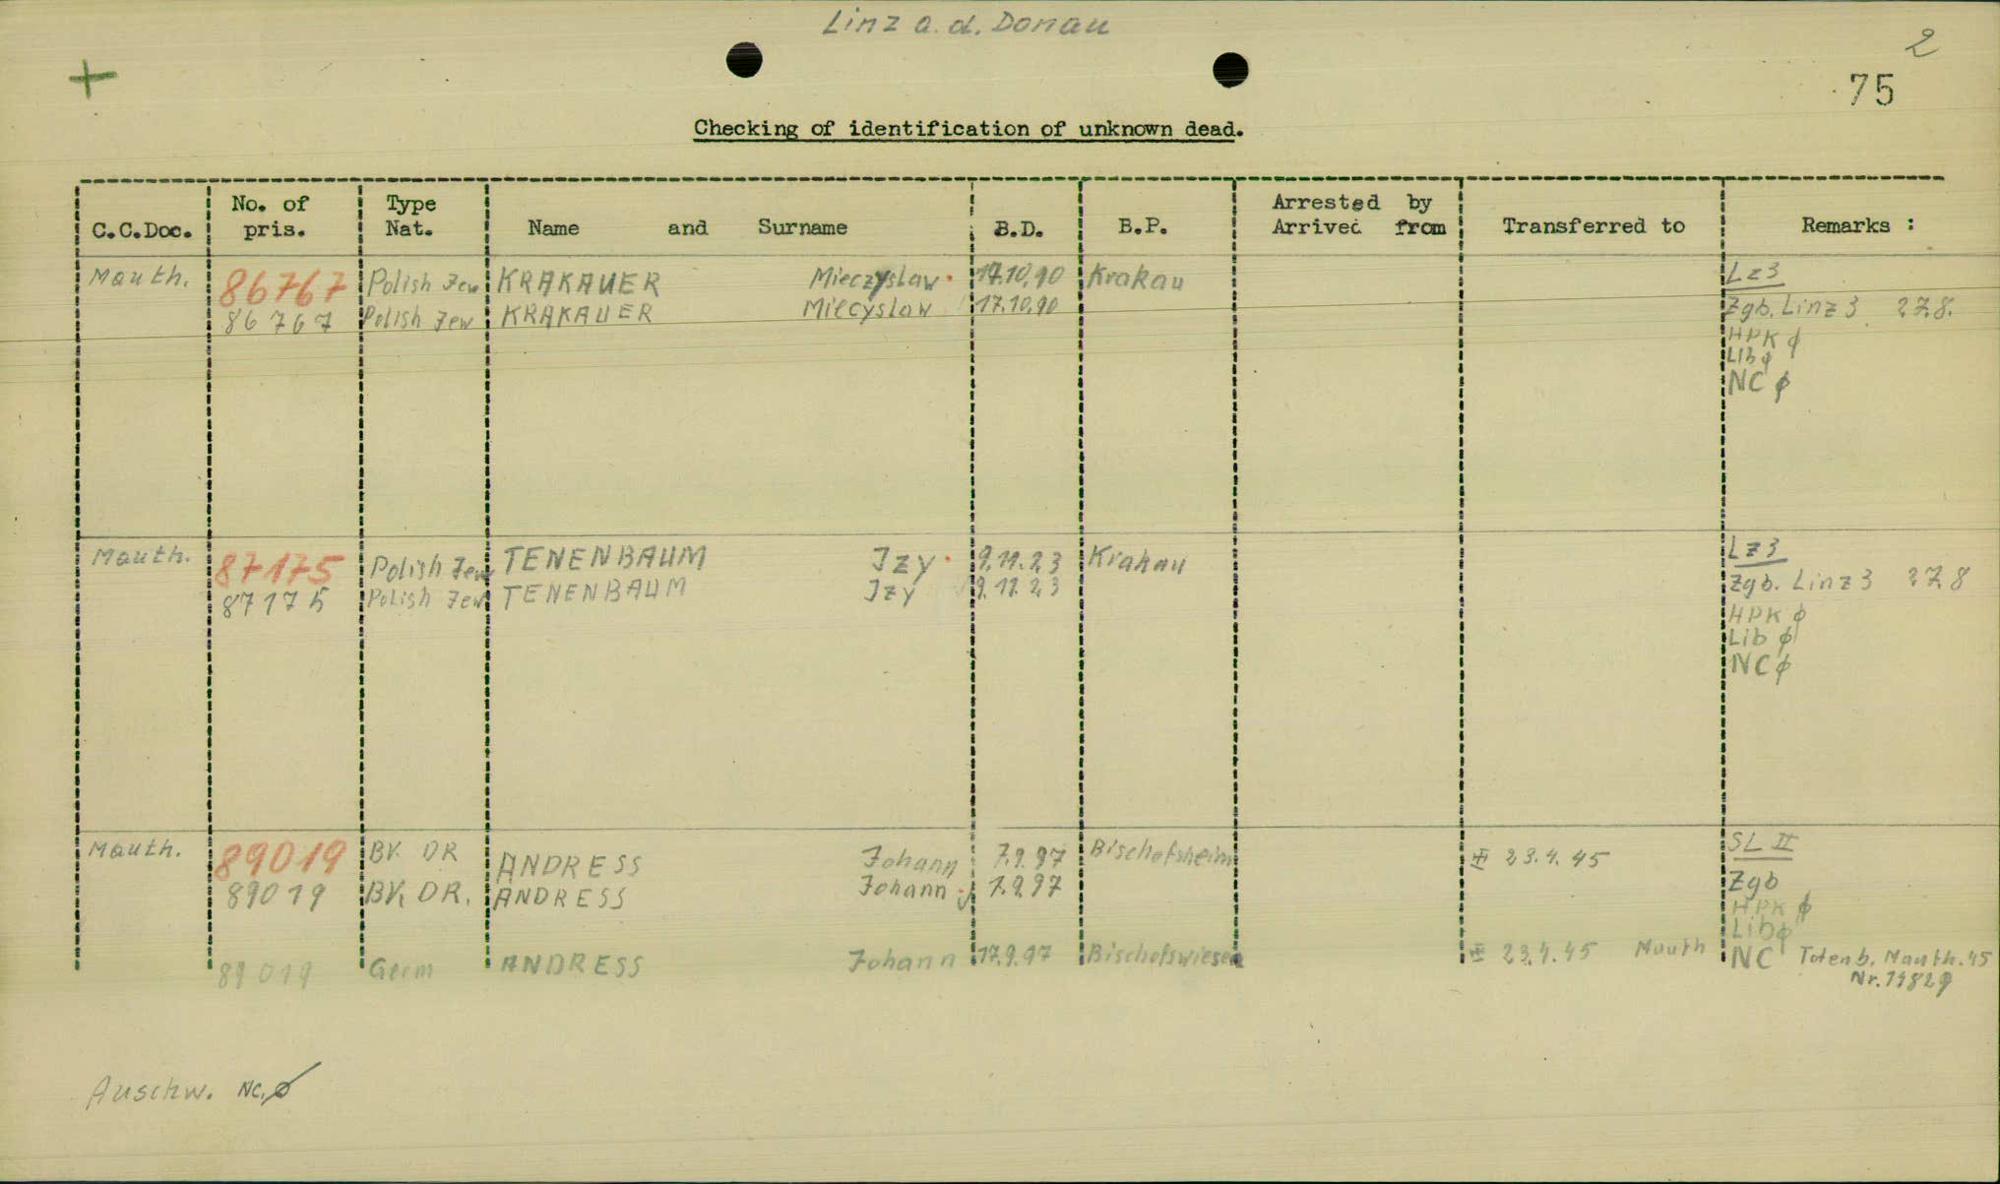 Linz a. d. Donau
2
75
Checking of identification of unknown dead.
C.C.Doc. No. of pris. Type Nat. Name and Surname B.D. B.P. Arrested by Arrived from Transferred to Remarks :
Mauth. 86767 Polish Jew KRAKAUER Mieczyslaw 17.10.90 Krakau Lz3
86767 Polish Jew KRAKAUER Miecyslaw 17.10.90 Zgb. Linz 3 27.8.
HPK ϕ
Lib ϕ
NC ϕ
Mauth. 87175 Polish Jew TENENBAUM Jzy 9.11.23 Krakau Lz3
87175 Polish Jew TENENBAUM Jzy 9.11.23 Zgb. Linz 3 27.8
HPK ϕ
Lib ϕ
NC ϕ
Mauth. 89019 BV. DR ANDRESS Johann 7.9.97 Bischofsheim 23.4.45 SL II
89019 BV. DR. ANDRESS Johann 7.9.97 Zgb
HPK ϕ
Lib ϕ
89019 Germ ANDRESS Johann 17.9.97 Bischofswiesen 23.4.45 Mauth NC Totenb. Mauth. 45
Auschw. NC. ϕ